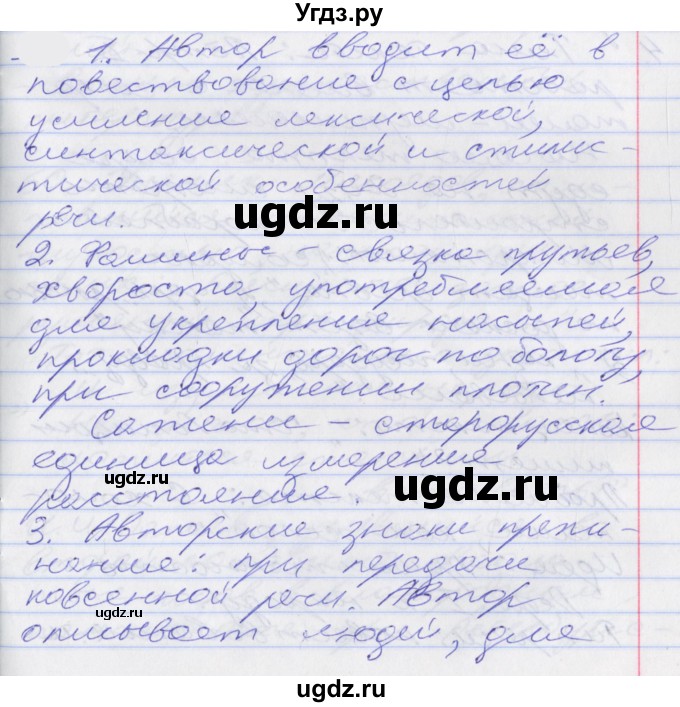 Угдз.ру
1. Автор вводит её в
повествование с целью
усиление лексической,
синтаксической и стилис-
тической особенностей
речи.
ugdz.ru
2. Фашины - связка прутьев,
хвороста, употребляемая
для укрепления насыпей,
прокладки дорог по болоту,
при сооружении плотен.
Сажени - старорусская
единица измерение
ugdz.ru
ugdz.ru
расстояния.
3. Авторские знаки препи-
нание: при передачи
ugdz.ru
ковсенной речи. Автор
описывает людей, для
ugdz.ru
ugdz.ru